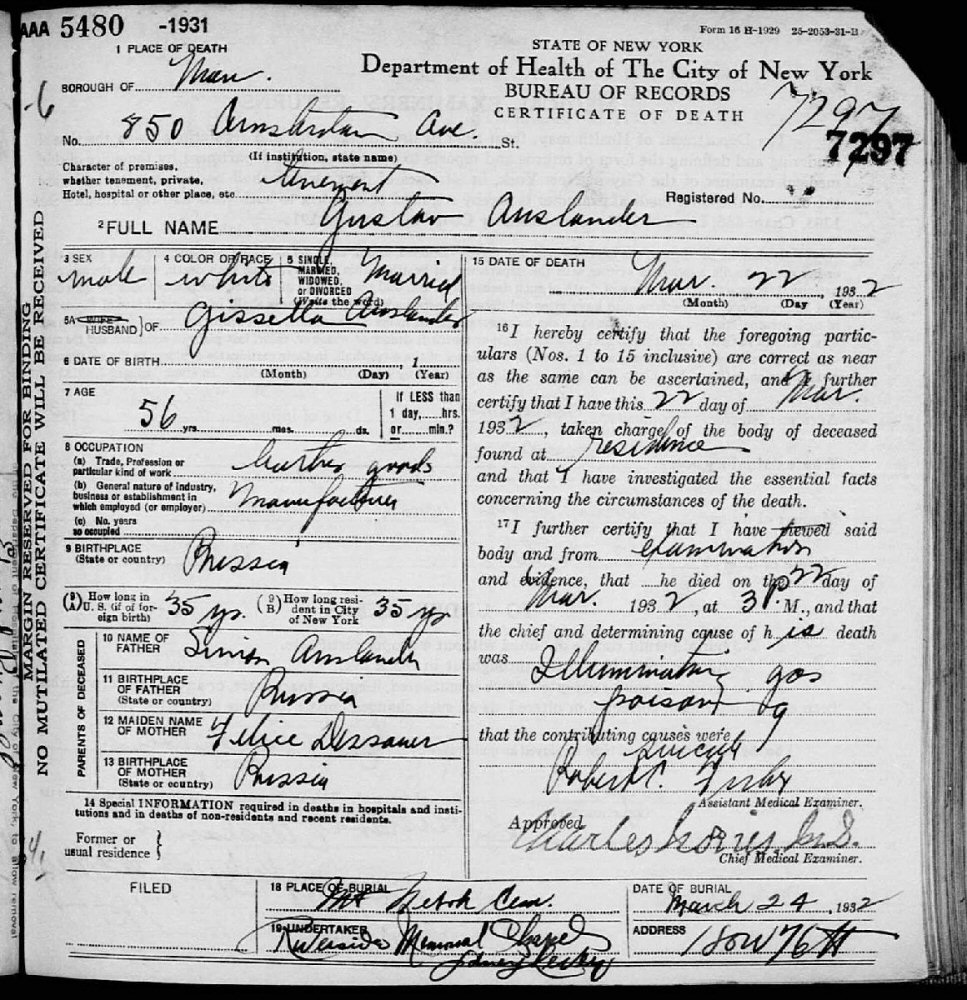 AAA 5480 -1931
Form 16 H-1929 25-2053-31-B
1 PLACE OF DEATH
STATE OF NEW YORK
Department of Health of The City of New York
BUREAU OF RECORDS
CERTIFICATE OF DEATH
BOROUGH OF Man.
7297
7297
No. 850 Amsterdam Ave. St.
(If institution, state name)
Character of premises,
whether tenement, private,
Hotel, hospital or other place, etc. tenement
Registered No.
2 FULL NAME Gustav Auslander
3 SEX male
4 COLOR OR RACE white
5 SINGLE, MARRIED, WIDOWED, or DIVORCED (Write the word) Married
5A WIFE HUSBAND OF Gissella Auslander
6 DATE OF BIRTH , 1
(Month) (Day) (Year)
7 AGE 56 yrs. mos. ds.
If LESS than
1 day, hrs.
or min.?
8 OCCUPATION
(a) Trade, Profession or
particular kind of work Leather goods
(b) General nature of industry,
business or establishment in
which employed (or employer) Manufacturer
(c) No. years
so occupied
9 BIRTHPLACE
(State or country) Russia
(A) How long in
U. S. (if of foreign birth) 35 yrs.
(B) How long resident in City
of New York 35 yrs
PARENTS OF DECEASED
10 NAME OF
FATHER Simon Auslander
11 BIRTHPLACE
OF FATHER
(State or country) Russia
12 MAIDEN NAME
OF MOTHER Felice Dessauer
13 BIRTHPLACE
OF MOTHER
(State or country) Russia
14 Special INFORMATION required in deaths in hospitals and insti-
tutions and in deaths of non-residents and recent residents.
Former or
usual residence
15 DATE OF DEATH
Mar. 22, 1932
(Month) (Day) (Year)
16 I hereby certify that the foregoing partic-
ulars (Nos. 1 to 15 inclusive) are correct as near
as the same can be ascertained, and I further
certify that I have this 22 day of Mar.
1932, taken charge of the body of deceased
found at residence
and that I have investigated the essential facts
concerning the circumstances of the death.
17 I further certify that I have viewed said
body and from examination
and evidence, that he died on the 22 day of
Mar. 1932, at 3 P. M., and that
the chief and determining cause of his death
was Illuminating gas
poisoning
that the contributing causes were
suicide
Robert C. Fisher
Assistant Medical Examiner.
Approved
Charles Norris M.D.
Chief Medical Examiner.
FILED
18 PLACE OF BURIAL
Mt Neboh Cem.
DATE OF BURIAL
March 24, 1932
19 UNDERTAKER
Riverside Memorial Chapel
ADDRESS
180 W 76 St
MARGIN RESERVED FOR BINDING
NO MUTILATED CERTIFICATE WILL BE RECEIVED